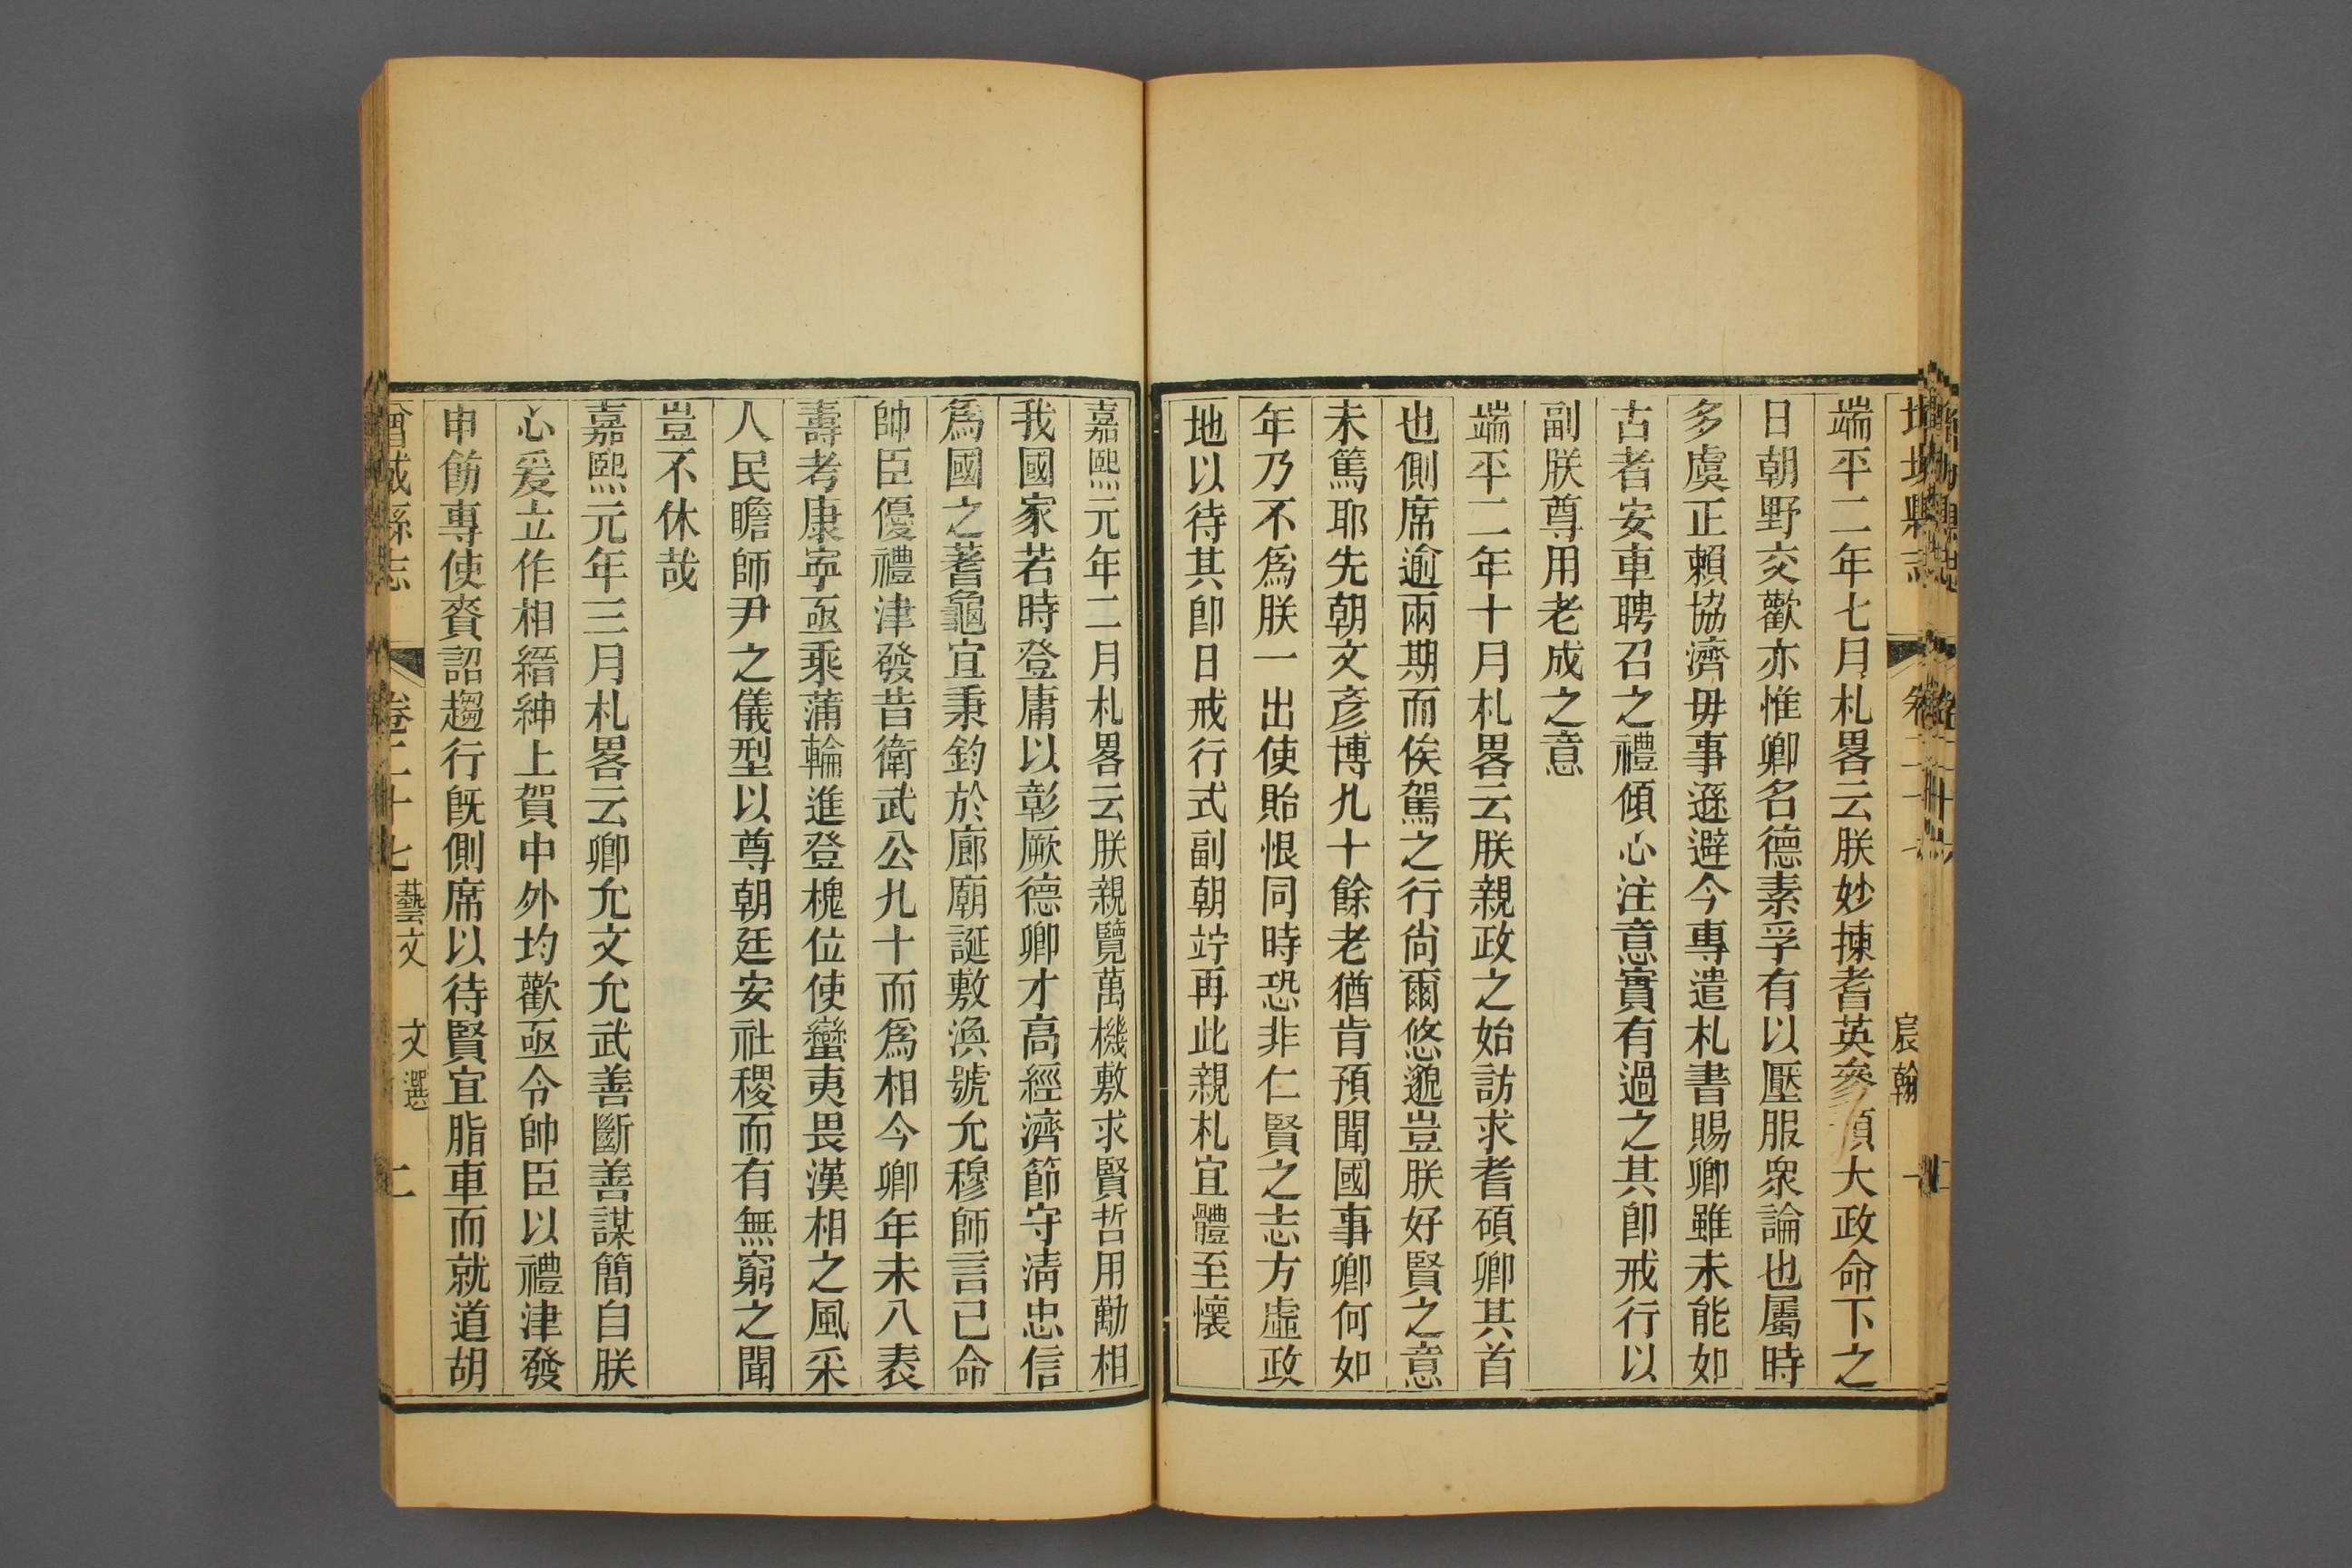 宸翰
端平二年七月札畧云朕妙揀耆英參預大政命下之
日朝野交歡亦惟卿名德素孚有以壓服衆論也屬時
多虞正賴協濟毋事遜避今專遣札書賜卿雖未能如
古者安車聘召之禮傾心注意實有過之其卽戒行以
副朕尊用老成之意
端平二年十月札畧云朕親政之始訪求耆碩卿其首
也側席逾兩期而俟駕之行尙爾悠邈豈朕好賢之意
未篤耶先朝文彥博九十餘老猶肯預聞國事卿何如
年乃不爲朕一出使貽恨同時恐非仁賢之志方虛政
地以待其卽日戒行式副朝竚再此親札宜體至懷
嘉熙元年二月札畧云朕親覽萬機敷求賢哲用勱相
我國家若時登庸以彰厥德卿才高經濟節守淸忠信
爲國之蓍龜宜秉鈞於廊廟誕敷渙號允穆師言已命
帥臣優禮津發昔衛武公九十而爲相今卿年未八袠
壽考康寧亟乘蒲輪進登槐位使蠻夷畏漢相之風采
人民瞻師尹之儀型以尊朝廷安社稷而有無窮之聞
豈不休哉
嘉熙元年三月札畧云卿允文允武善斷善謀簡自朕
心爰立作相縉紳上賀中外均歡亟令帥臣以禮津發
申飭專使賫詔趨行旣側席以待賢宜脂車而就道胡
卷二十七 藝文 文選 二